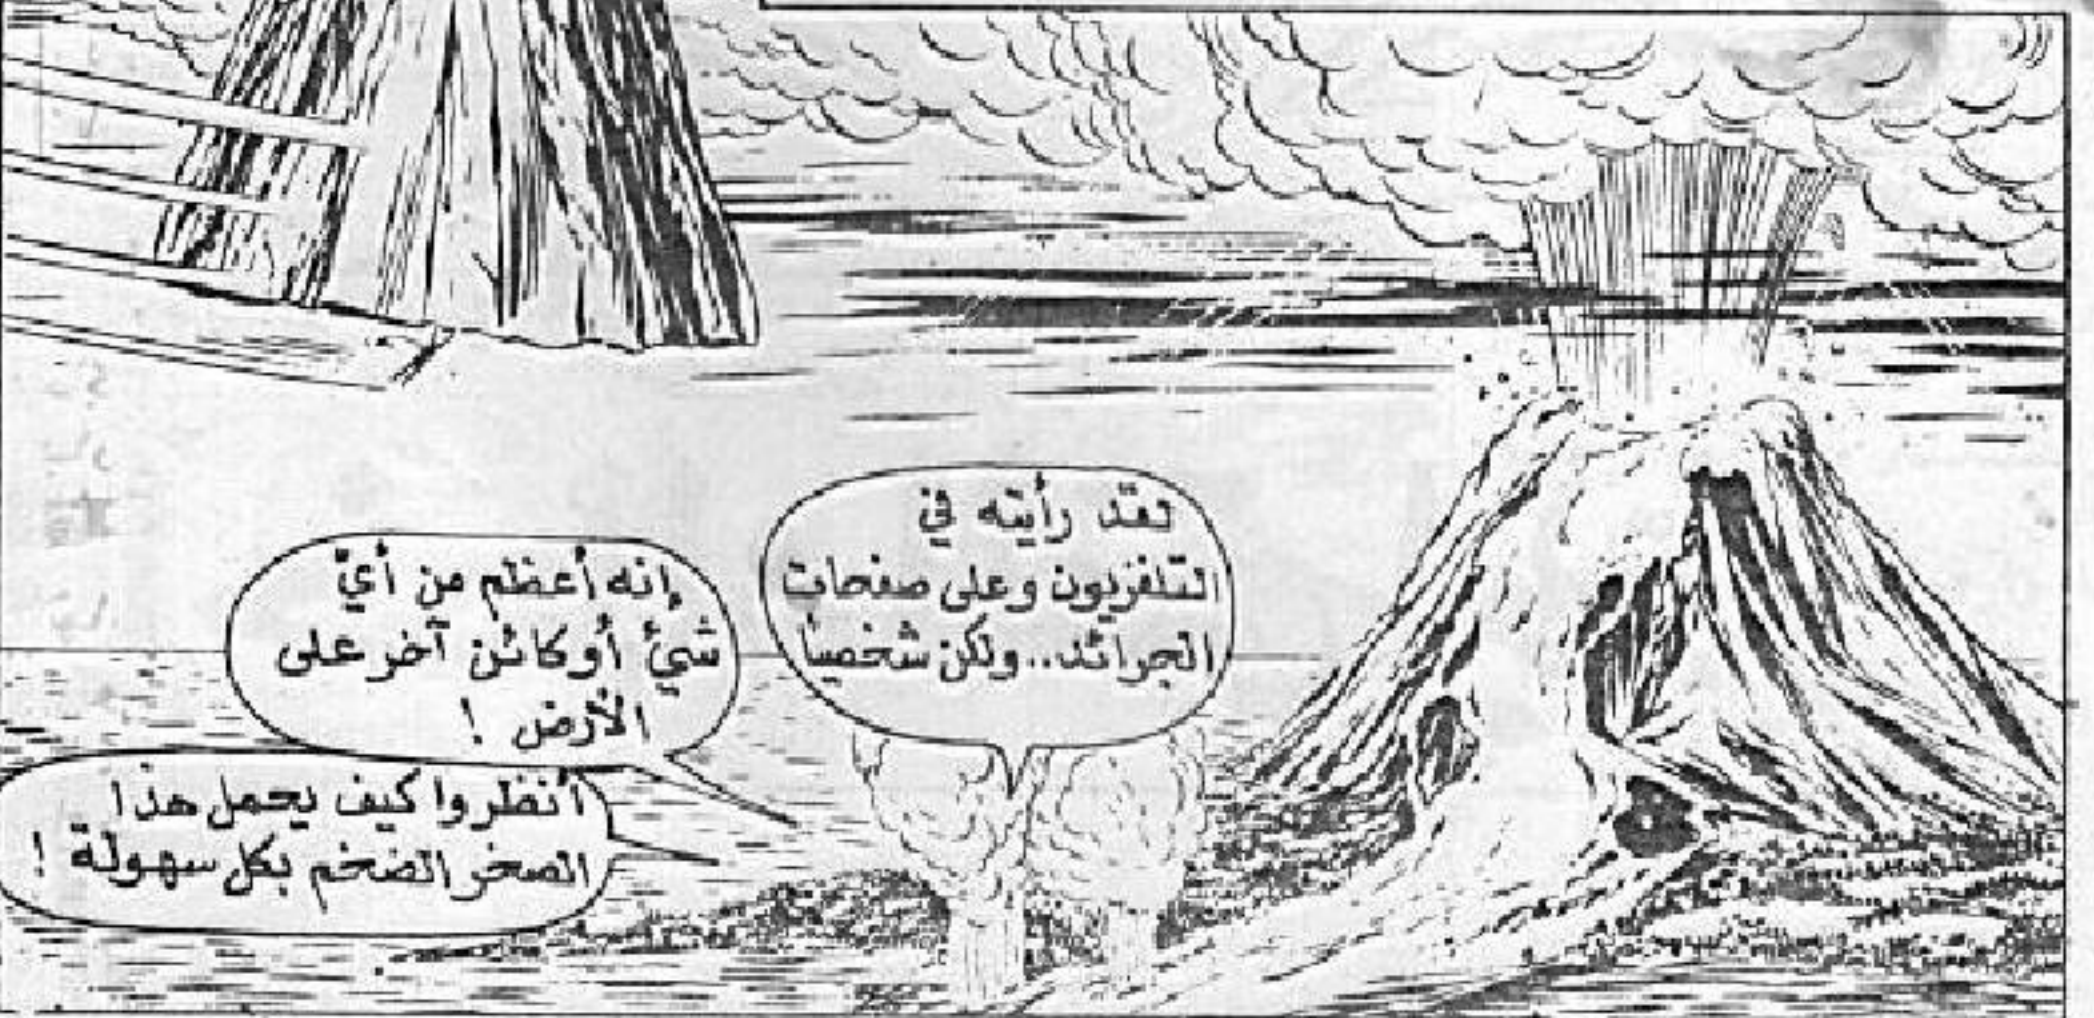 لقد رأيته في
التلفزيون وعلى صفحات
الجرائد.. ولكن شخصياً
إنه أعظم من أيّ
شيئ أو كائن آخر على
الأرض !
أنظروا كيف يحمل هذا
الصخر الضخم بكل سهولة !